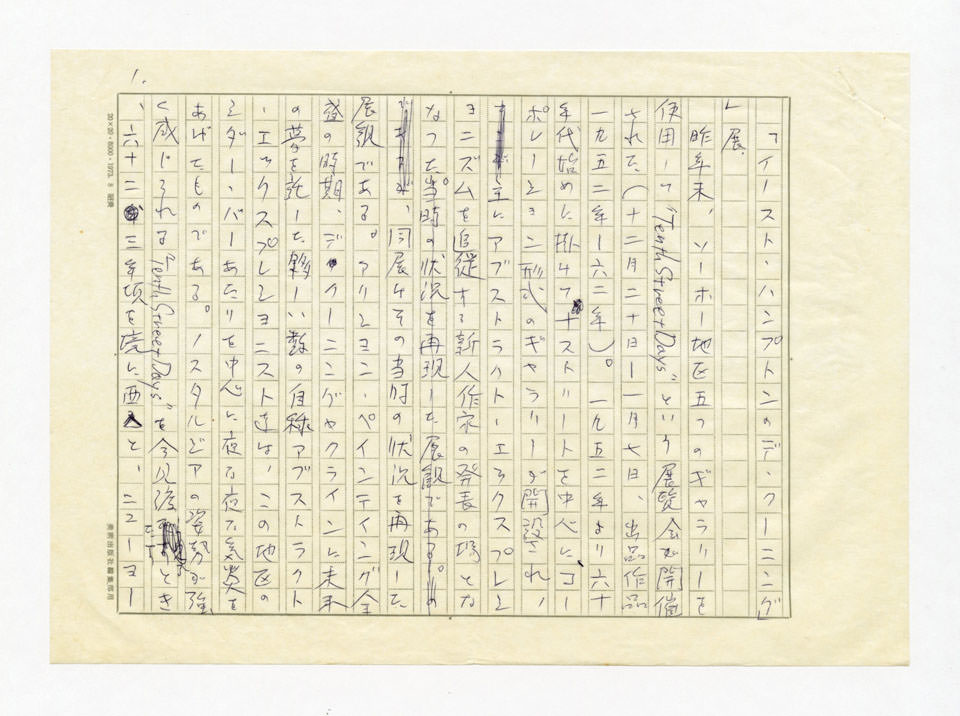 1.
「イースト・ハンプトンのデ・クーニング
」展
昨年末、ソーホー地区五つのギャラリーを
使用して"Tenth Street Days"という展覧会が開催
された（十二月二十日—一月七日、出品作品
一九五二年—六二年）。一九五二年より六十
年代始めに掛けて十ストリートを中心に、コー
ポレーション形式のギャラリーが開設され、
主にアブストラクト・エックスプレッシ
ョニズムを追従する新人作家の発表の場とな
なった当時の状況を再現した展観である。
同展はその当時の状況を再現した
展観である。アクション・ペインティング全
盛の時期、デ・クーニングやクラインに未来
の夢を託した夥しい数の自称アブストラクト
・エックスプレッショニスト達は、この地区の
シダー・バーあたりを中心に夜な夜な気焔を
あげたものである。ノスタルジアの姿勢が強
く感じられる"Tenth Street Days"を今見後すとき
、六十二、三年頃を境に西と、ニューヨー
20×20・8000・1973. 8 昭美
美術出版社編集部用